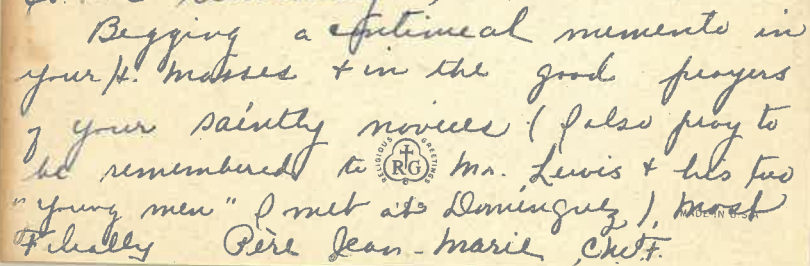 Begging a continual memento in
your H. Masses + in the good prayers
of your saintly novices (I also pray to
be remembered to Mr. Lewis + his two
"young men" I met at Dominguez), most
Filially Père Jean-Marie
RELIGIOUS GREETINGS
RG
MADE IN U.S.A